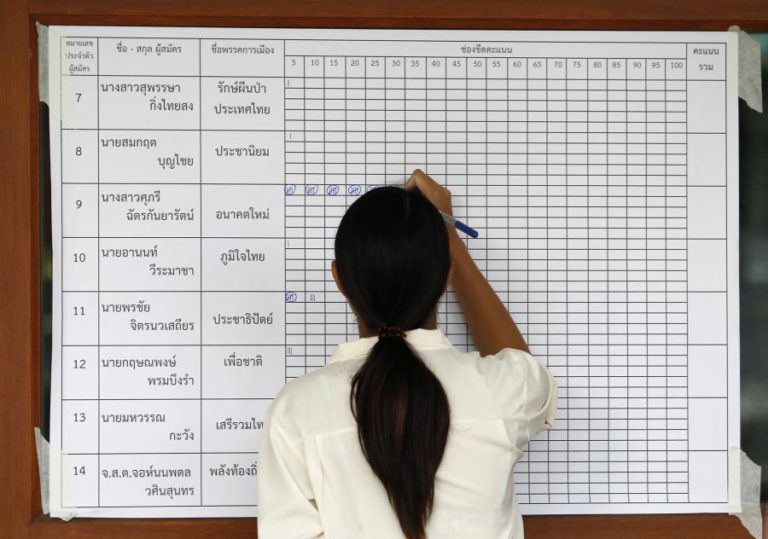 หมายเลข
ประจำตัว
ผู้สมัคร
ชื่อ - สกุล ผู้สมัคร
ชื่อพรรคการเมือง
ช่องขีดคะแนน
5 10 15 20 25 30 35 40 45 50 55 60 65 70 75 80 85 90 95 100
คะแนน
รวม
7 นางสาวสุพรรษา
กิ่งไทยสง
รักษ์ผืนป่า
ประเทศไทย
8 นายสมกฤต
บุญไชย
ประชานิยม
9 นางสาวศุภรี
ฉัตรกันยารัตน์
อนาคตใหม่
10 นายอานนท์
วีระมาชา
ภูมิใจไทย
11 นายพรชัย
จิตรนวเสถียร
ประชาธิปัตย์
12 นายกฤษณพงษ์
พรมบึงรำ
เพื่อชาติ
13 นายมหวรรณ
กะวัง
เสรีรวมไท
14 จ.ส.ต.จอห์นนพดล
วศินสุนทร
พลังท้องถิ่